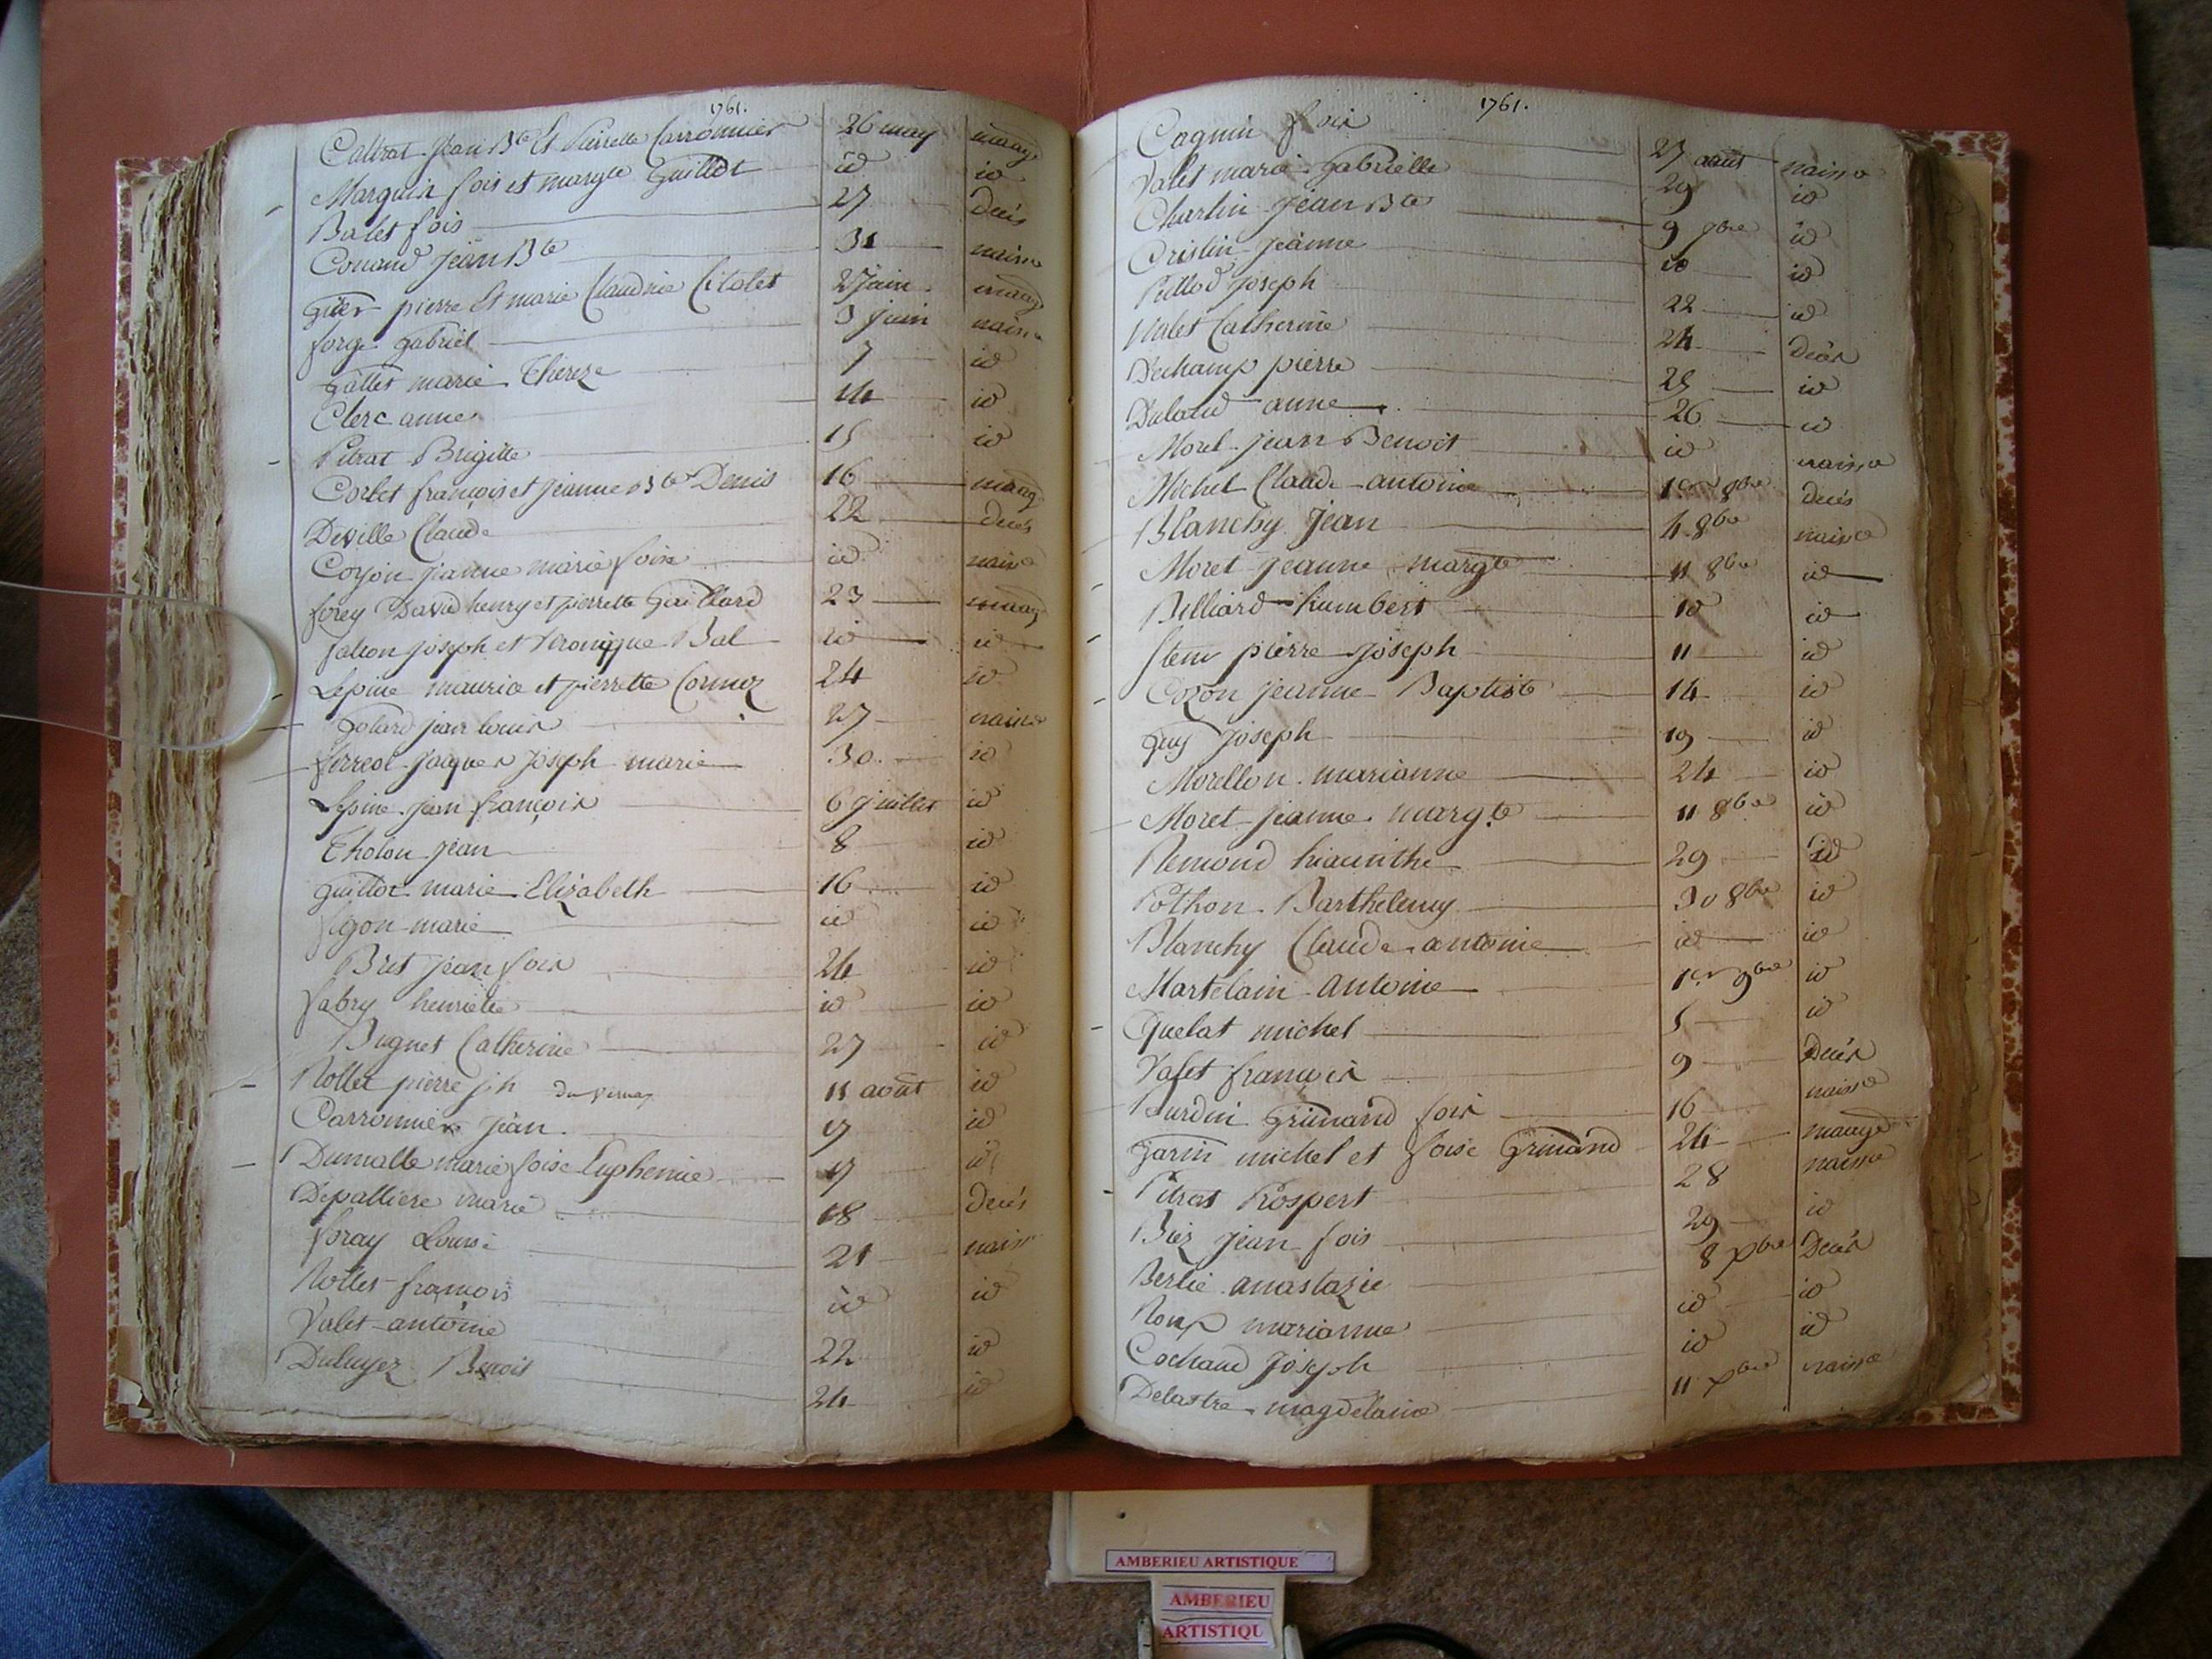 1761.
Caltrat Jean Bte Et Pierrette Carronnier 26 may mariage
Marquis fois et margte Guillot id id
Balet fois 27 décès
Conand Jean Bte 31 naissce
Gier pierre Et marie Claudine Citolet 2 juin mariage
forge Gabriel 3 juin naissce
Gallet marie Thereze 7 id
Clerc anne 14 id
Pitrat Brigitte 15 id
Corbet françois et Jeanne Bte Denis 16 mariag
Deville Claude 22 décès
Cozon jeanne marie foise id naissce
forey David henry et pierrette Gaillard 23 mariag
falion joseph et Veronique Bal id id
Lepine maurice et pierrette Cormoz 24 id
Golard jean louis 27 naissce
ferreol Jacques Joseph marie 30 id
Lepine jean françois 6 juillet id
Tholon Jean 8 id
Guillot marie Elizabeth 16 id
figon marie id id
Bret Jean fois 24 id
fabry henriette id id
Bugnet Catherine 27 id
Rollet pierre jh du vernay 11 août id
Carronnier Jean 17 id
Dumalle marie foise Euphemie 17 id
Depalliere marie 18 décès
foray Louise 21 naiss
Rollet françois id id
Valet antoine 22 id
Dubuyez Benois 24 id
1761.
Cagnin fois 27 août naissce
Valet marie Gabrielle 29 id
Charlin Jean Bte 9 7bre id
Cristin Jeanne 10 id
Pullod Joseph 22 id
Valet Catherine 24 décès
Dechamp pierre 25 id
Dulaud anne 26 id
Morel Jean Benoit id naissce
Michel Claude antoine 1er 8bre décès
Blanchy Jean 4 8bre naissce
Moret Jeanne margte 11 8bre id
Billiard humbert 10 id
Stem pierre Joseph 11 id
Cozon jeanne Baptiste 14 id
Guy Joseph 19 id
Morellon marianne 24 id
Moret jeanne margte 11 8bre id
Remond hiacinthe 29 id
Pothon Barthelemy 30 8bre id
Blanchy Claude antoine id id
Martelain Antoine 1er 9bre id
Quelat michel 5 id
Valet françois 9 Décès
Burdin Grimand fois 16 naissce
Garin michel et foise Grimand 24 mariage
Pitrat Prospert 28 naissce
Biez jean fois 29 id
Berlie anastazie 8 xbre Décès
Roux marianne id id
Cochand Joseph id id
Delastre magdelaine 11 xbre naissce
AMBERIEU ARTISTIQUE
AMBERIEU
ARTISTIQU